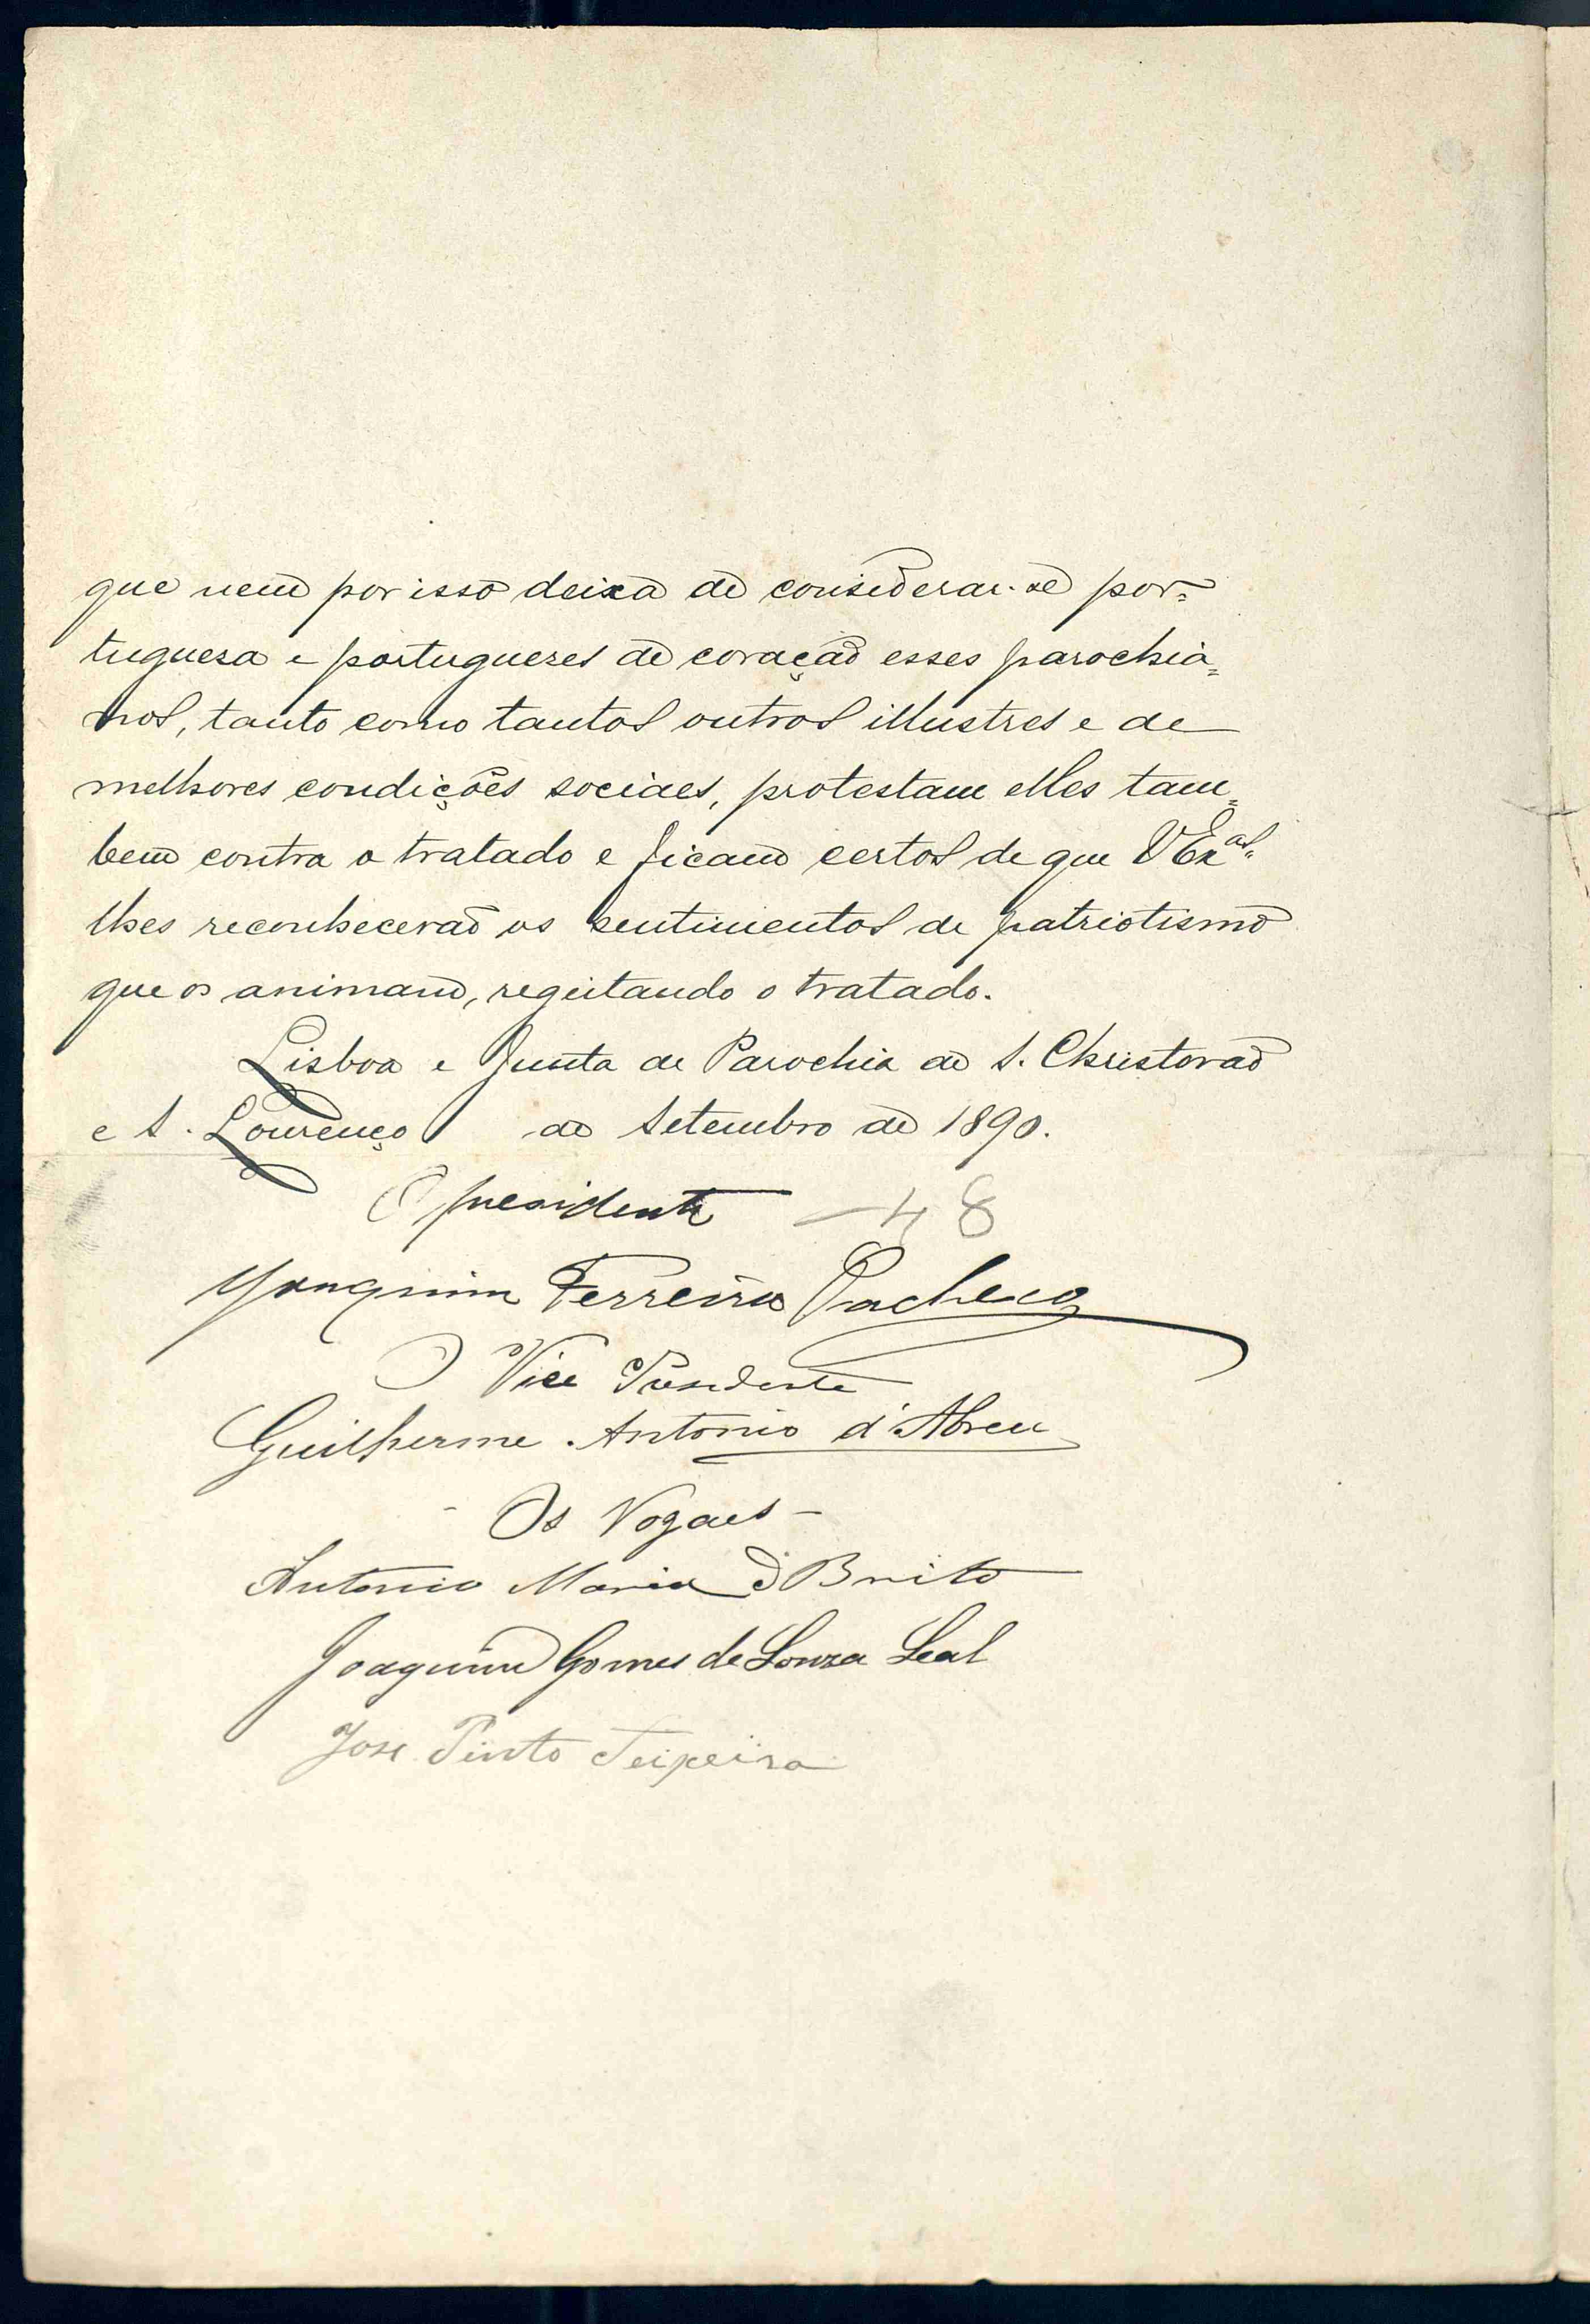 que nem por isso deixa de considerar-se por=
tugueza e portuguezes de coração esses parochia=
nos, tanto como tantos outros illustres e de
melhores condições sociaes, protestam elles tam=
bem contra o tratado e ficam certos de que VEx.as
lhes reconhecerão os sentimentos de patriotismo
que os animam, regeitando o tratado.
Lisboa e Junta de Parochia de S. Christovão
e S. Lourenço de Setembro de 1890.
O presidente — 48
Joaquim Ferreira Pacheco
O Vice Presidente
Guilherme Antonio d'Abreu
- Os Vogaes -
Antonio Maria d Brito
Joaquim Gomes de Souza Leal
Jose Pinto Teixeira